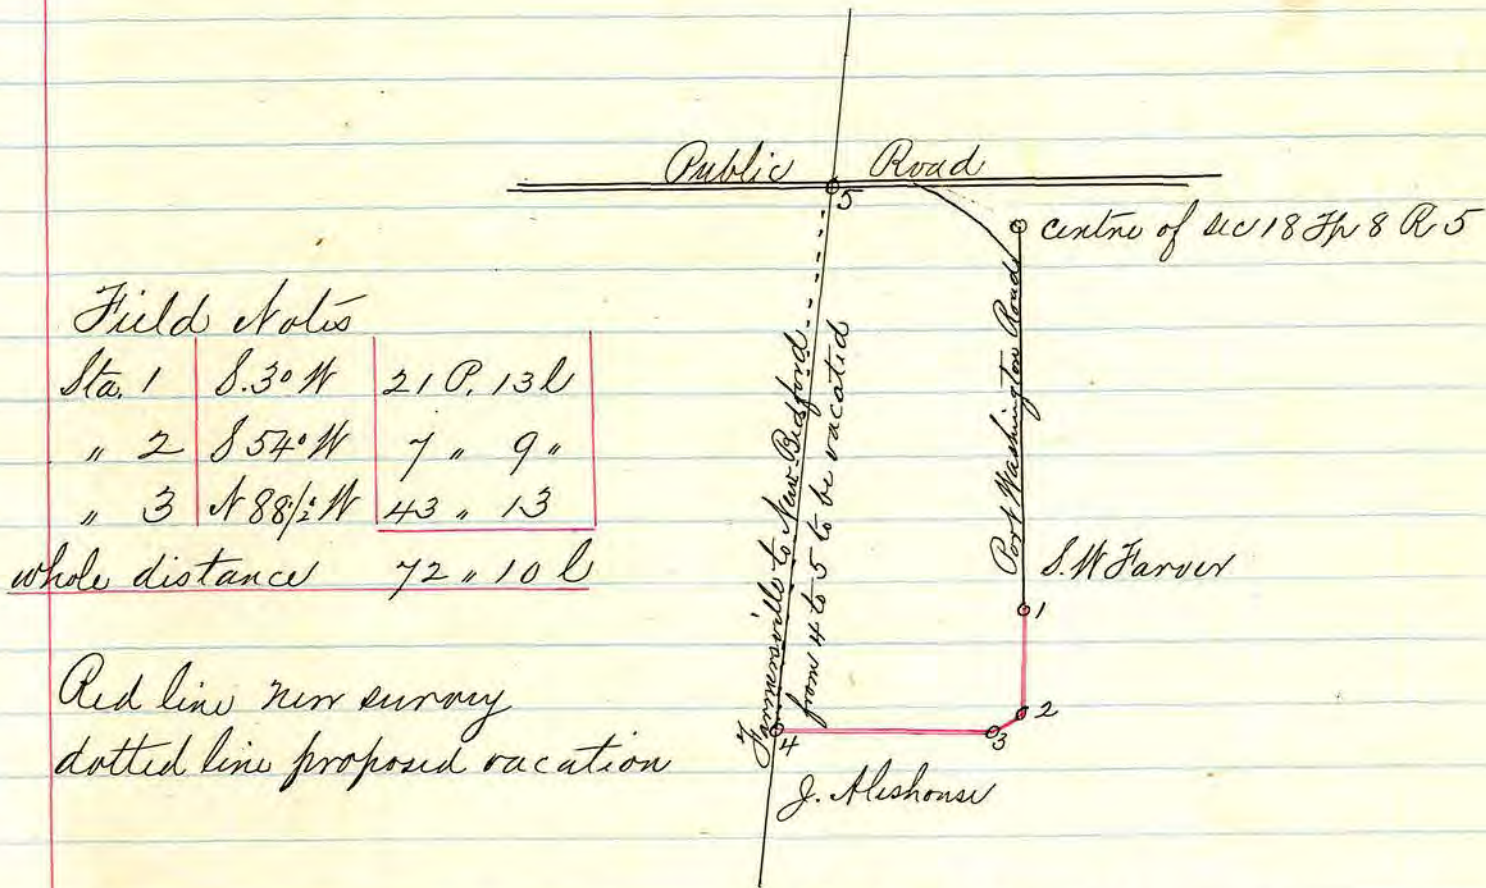 Public Road
5
centre of sec 18 Tp 8 R 5
Field Notes
Sta. 1 S. 3° W 21 P. 13 l
" 2 S 54° W 7 " 9 "
" 3 N 88 1/2° W 43 " 13
whole distance 72 " 10 l
Red line new survey
dotted line proposed vacation
Farmersville to New Bedford
from 4 to 5 to be vacated
Port Washington Road
S. W Farver
1
2
3
4
J. Aleshouse